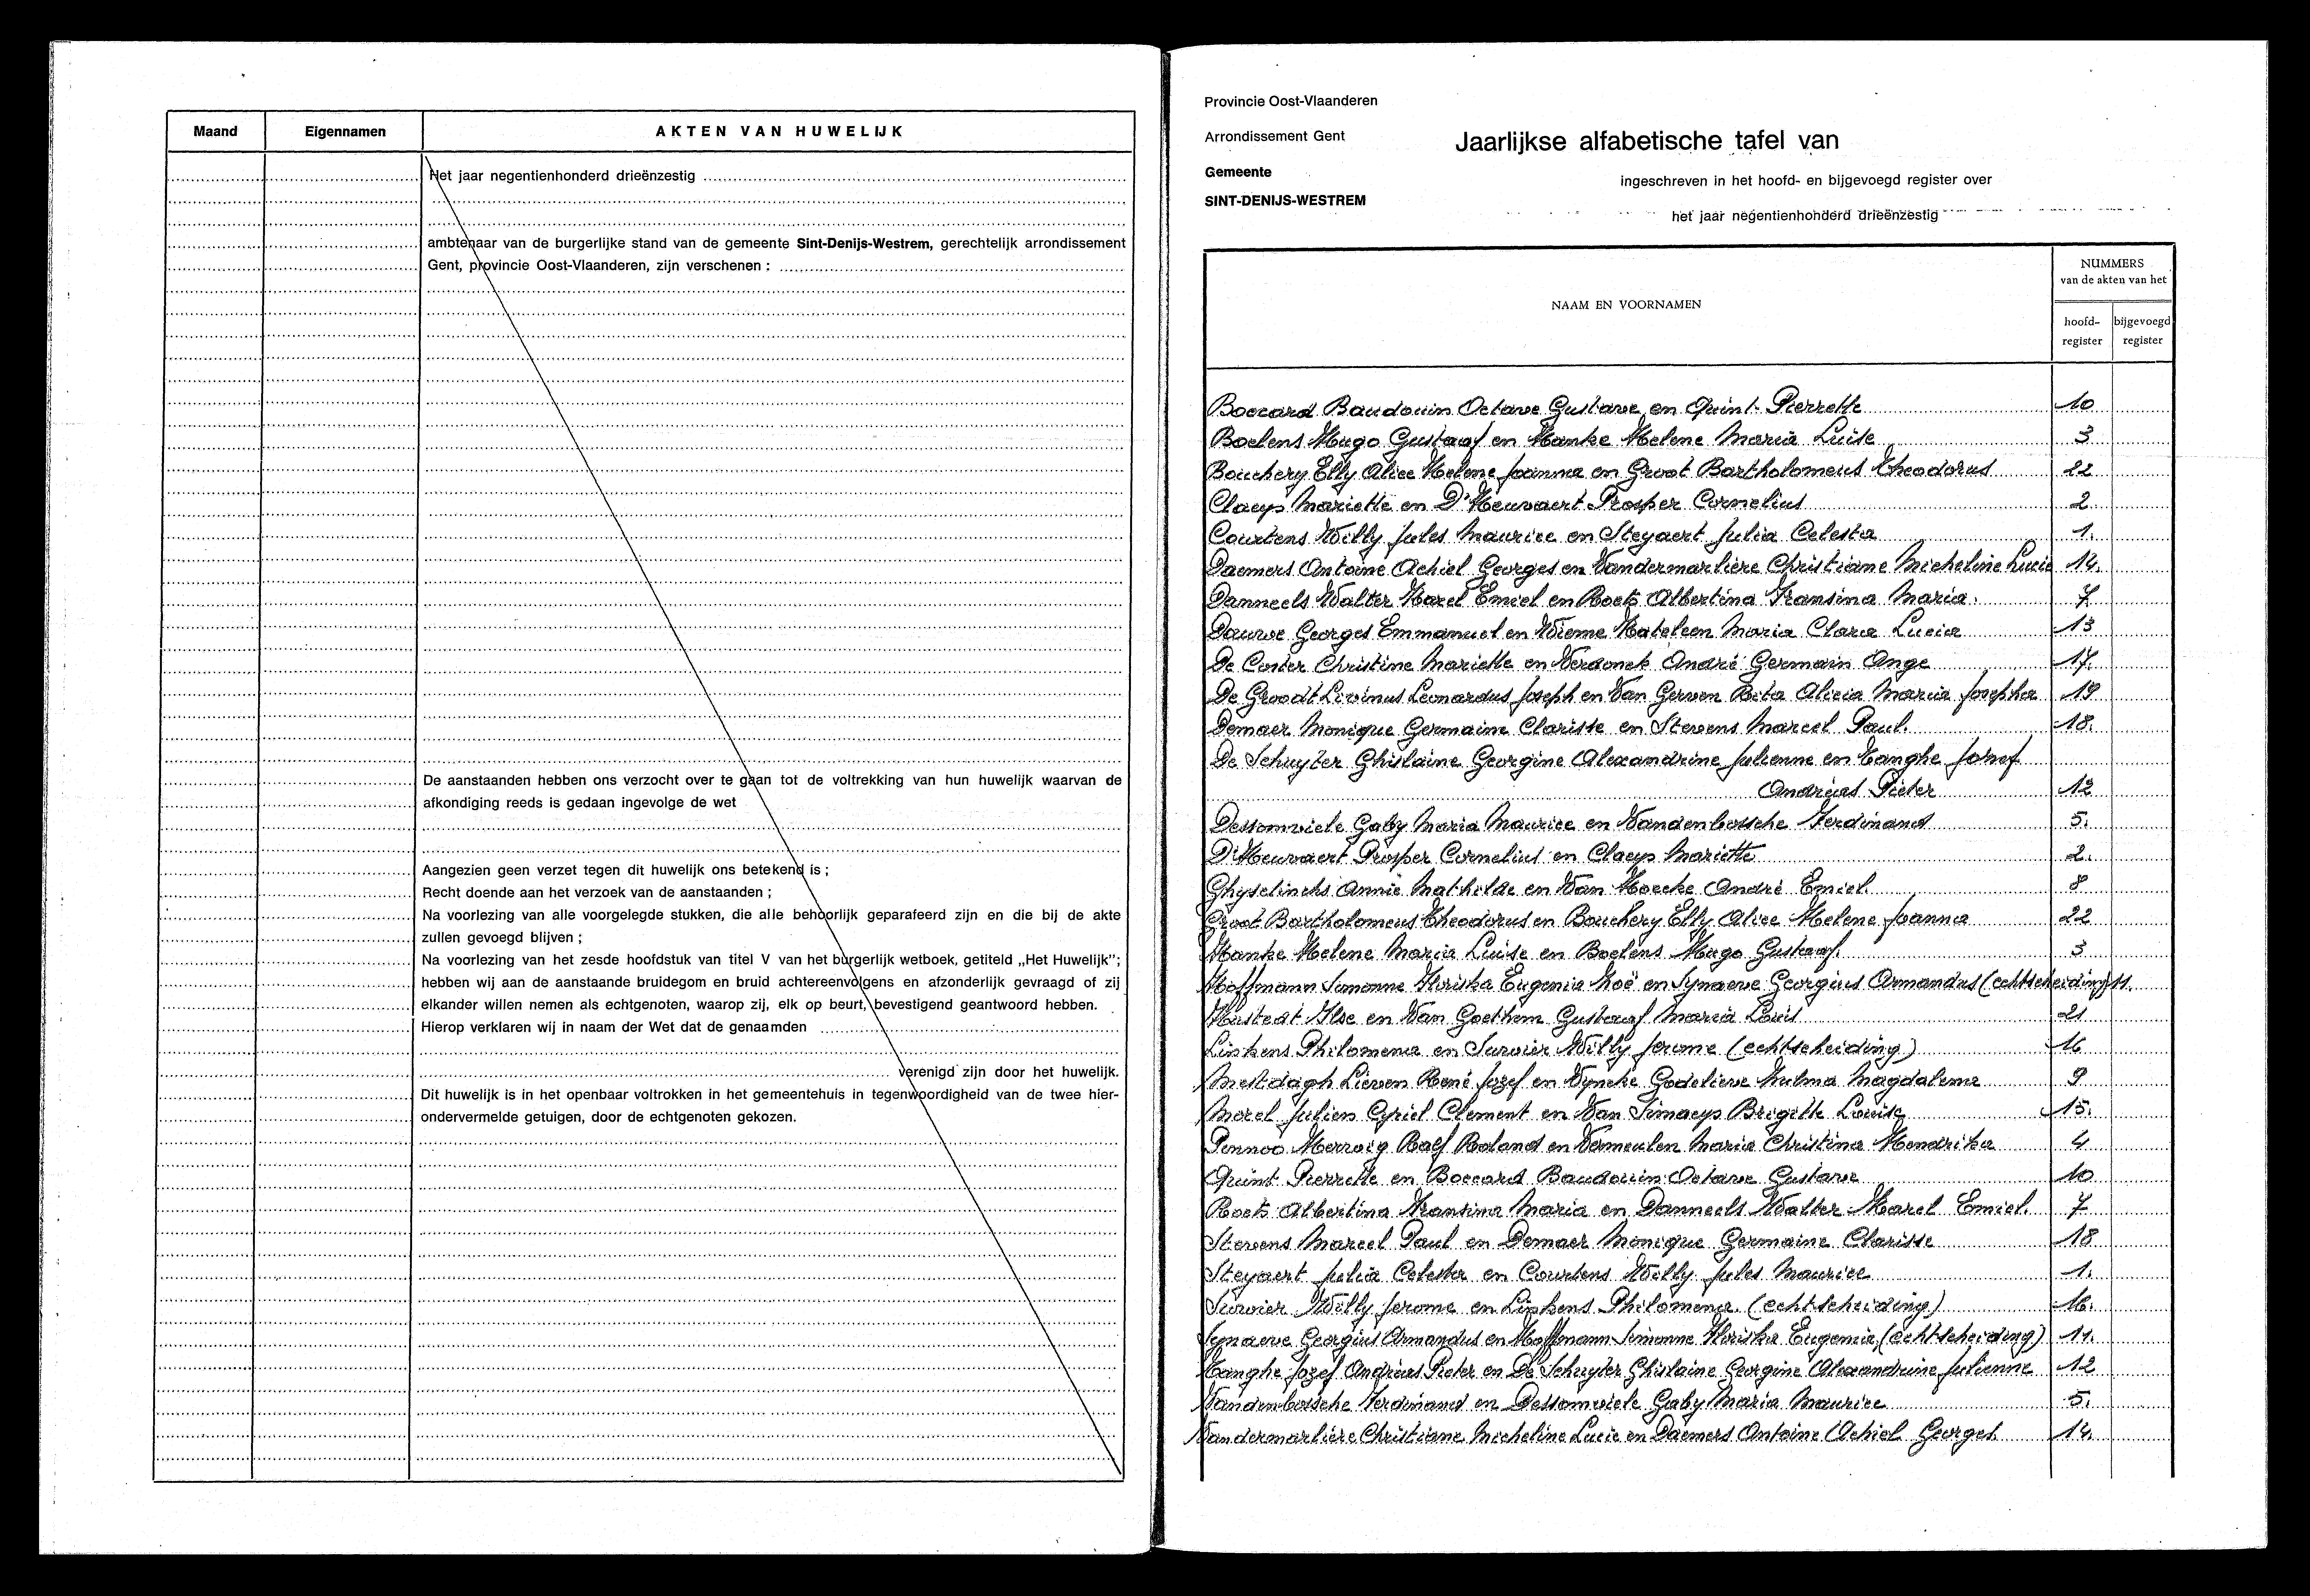 Maand Eigennamen AKTEN VAN HUWELIJK
Het jaar negentienhonderd drieënzestig
ambtenaar van de burgerlijke stand van de gemeente Sint-Denijs-Westrem, gerechtelijk arrondissement
Gent, provincie Oost-Vlaanderen, zijn verschenen :
De aanstaanden hebben ons verzocht over te gaan tot de voltrekking van hun huwelijk waarvan de
afkondiging reeds is gedaan ingevolge de wet
Aangezien geen verzet tegen dit huwelijk ons betekend is ;
Recht doende aan het verzoek van de aanstaanden ;
Na voorlezing van alle voorgelegde stukken, die alle behoorlijk geparafeerd zijn en die bij de akte
zullen gevoegd blijven ;
Na voorlezing van het zesde hoofdstuk van titel V van het burgerlijk wetboek, getiteld „Het Huwelijk";
hebben wij aan de aanstaande bruidegom en bruid achtereenvolgens en afzonderlijk gevraagd of zij
elkander willen nemen als echtgenoten, waarop zij, elk op beurt, bevestigend geantwoord hebben.
Hierop verklaren wij in naam der Wet dat de genaamden
verenigd zijn door het huwelijk.
Dit huwelijk is in het openbaar voltrokken in het gemeentehuis in tegenwoordigheid van de twee hier-
ondervermelde getuigen, door de echtgenoten gekozen.
Provincie Oost-Vlaanderen
Arrondissement Gent
Gemeente
SINT-DENIJS-WESTREM
Jaarlijkse alfabetische tafel van
ingeschreven in het hoofd- en bijgevoegd register over
het jaar negentienhonderd drieënzestig
NAAM EN VOORNAMEN
NUMMERS
van de akten van het
hoofd- bijgevoegd
register register
Boccard Baudouin Octave Gustave en Quint Pierrette 10
Boelens Hugo Gustaaf en Hanke Helene Maria Luise 3
Bouchery Elly Alice Helene Joanna en Groot Bartholomeus Theodorus 22
Claeys Mariette en D'Heuvaert Prosper Cornelius 2.
Courtens Willy Jules Maurice en Steyaert Julia Celesta 1.
Daemers Antoine Achiel Georges en Vandermarlière Christiane Micheline Lucie 14.
Danneels Walter Karel Emiel en Roets Albertina Fransina Maria. 7
Dauwe Georges Emmanuel en Wieme Kateleen Maria Clara Lucia 13
De Coster Christine Mariette en Verdonck André Germain Ange 17.
De Groodt Livinus Leonardus Joseph en Van Gerven Rita Alicia Maria Josepha 19
Demaer Monique Germaine Clarisse en Stevens Marcel Paul. 18.
De Schuyter Ghislaine Georgine Alexandrine Julienne en Tanghe Jozef
Andreas Pieter 12
Dessomviele Gaby Maria Maurice en Vandenbossche Ferdinand 5.
D'Heuvaert Prosper Cornelius en Claeys Mariette 2.
Ghyselincks Annie Mathilde en Van Hoecke André Emiel. 8
Groot Bartholomeus Theodorus en Bouchery Elly Alice Helene Joanna 22
Hanke Helene Maria Luise en Boelens Hugo Gustaaf. 3
Hoffmann Simonne Floriska Eugenia Zoë en Synaeve Georgius Armandus (echtscheiding) 11.
Hustedt Ilse en Van Goethem Gustaaf Maria Louis 21
Linkens Philomena en Survier Willy Jerome (echtscheiding) 16
Mestdagh Lieven René Jozef en Vyncke Godelieve Zulma Magdalena 9
Morel Julien Cyriel Clement en Van Simaeys Brigitte Louise 15.
Pennoo Herwig Ralf Roland en Vermeulen Maria Christina Hendrika 4
Quint Pierrette en Boccard Baudouin Octave Gustave 10
Roets Albertina Fransina Maria en Danneels Walter Karel Emiel. 7
Stevens Marcel Paul en Demaer Monique Germaine Clarisse 18
Steyaert Julia Celesta en Courtens Willy Jules Maurice 1.
Survier Willy Jerome en Linkens Philomena. (echtscheiding) 16.
Synaeve Georgius Armandus en Hoffmann Simonne Floriska Eugenia (echtscheiding) 11.
Tanghe Jozef Andreas Pieter en De Schuyter Ghislaine Georgine Alexandrine Julienne 12
Vandenbossche Ferdinand en Dessomviele Gaby Maria Maurice 5.
Vandermarlière Christiane Micheline Lucie en Daemers Antoine Achiel Georges 14.